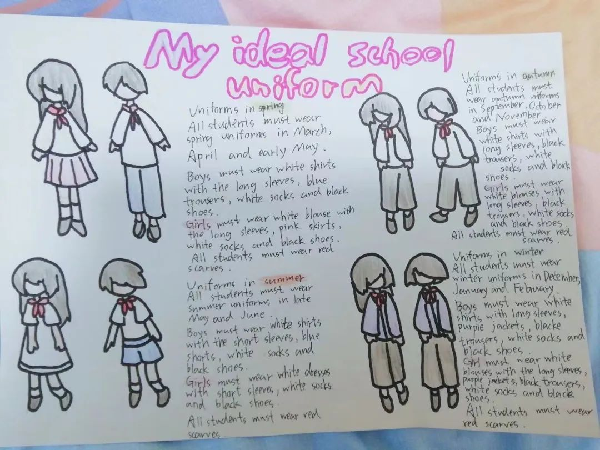 My ideal school
uniform
Uniforms in spring
All students must wear
spring uniforms in March,
April and early May.
Boys must wear white shirts
with the long sleeves, blue
trousers, white socks and black
shoes.
Girls must wear white blouse with
the long sleeves, pink skirts,
white socks and black shoes.
All students must wear red
scarves.
Uniforms in summer
All students must wear
summer uniforms, in late
May and June.
Boys must wear white shirts
with the short sleeves, blue
shorts, white socks and
black shoes.
Girls must wear white dresses
with short sleeves, white socks
and black shoes.
All students must wear red
scarves
Uniforms in autumn
All students must
wear autumn uniforms
in September, October
and November.
Boys must wear
white shirts with
long sleeves, black
trousers, white
socks and black
shoes.
Girls must wear
white blouses with
long sleeves, black
trousers, white socks
and black shoes
All students must wear red
scarves.
Uniforms in winter
All students must wear
winter uniforms in December,
January and February.
Boys must wear white
shirts with long sleeves,
purple jackets, blacke
trousers, white socks and
black shoes.
Girl must wear white
blouses with the long sleeves,
jackets, black trousers,
white socks and black
shoes.
All students must wear
red scarves.